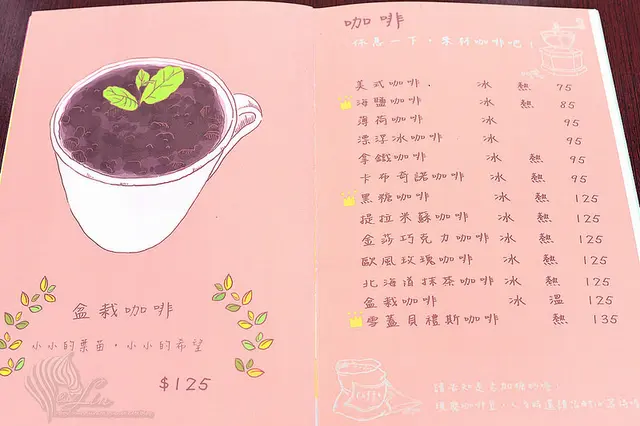 盆栽咖啡
小小的栗苗,小小的希望
$125
咖啡
休息一下,來杯咖啡吧!
美式咖啡 冰 熱 75
海鹽咖啡 冰 熱 85
薄荷咖啡 冰 95
漂浮冰咖啡 冰 95
拿鐵咖啡 冰 熱 95
卡布奇諾咖啡 冰 熱 95
黑糖咖啡 冰 熱 125
提拉米蘇咖啡 冰 熱 125
金莎巧克力咖啡 冰 熱 125
歐風玫瑰咖啡 冰 熱 125
北海道抹茶咖啡 冰 熱 125
盆栽咖啡 冰 溫 125
雪蓋貝禮斯咖啡 熱 135